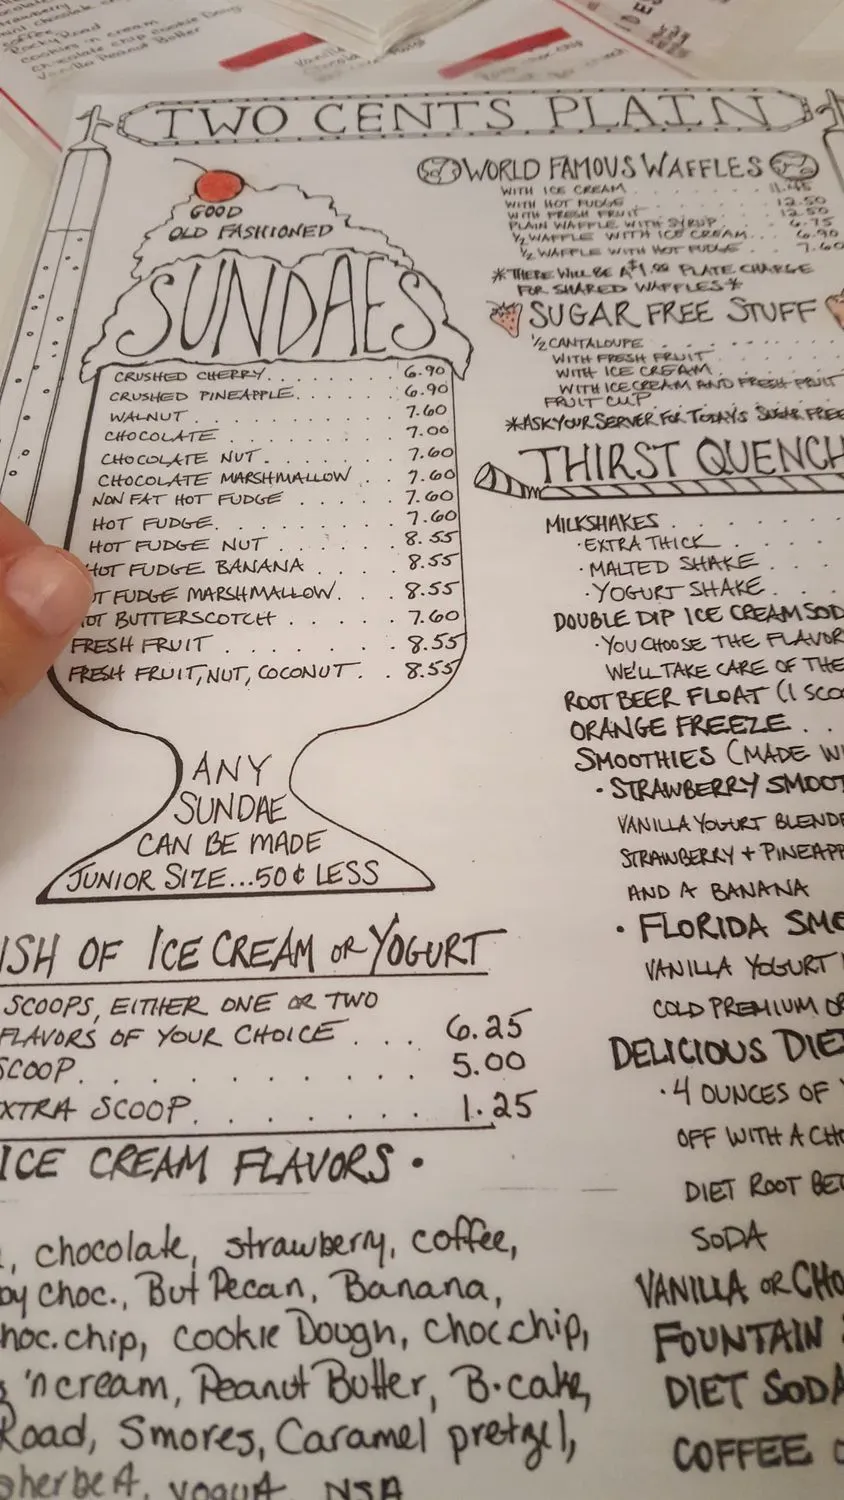 strawberry
coffee
Rocky Road
cookies 'n cream
chocolate chip cookie Doug
Vanilla Peanut Butter
TWO CENTS PLAIN
GOOD
OLD FASHIONED
SUNDAES
CRUSHED CHERRY. . . . . . . 6.90
CRUSHED PINEAPPLE. . . . . 6.90
WALNUT . . . . . . . . . 7.60
CHOCOLATE . . . . . . . . 7.00
CHOCOLATE NUT. . . . . . . 7.60
CHOCOLATE MARSHMALLOW . . 7.60
NON FAT HOT FUDGE . . . . . 7.60
HOT FUDGE. . . . . . . . 7.60
HOT FUDGE NUT . . . . . . 8.55
HOT FUDGE BANANA . . . . . 8.55
OT FUDGE MARSHMALLOW. . . 8.55
HOT BUTTERSCOTCH . . . . . 7.60
FRESH FRUIT . . . . . . . 8.55
FRESH FRUIT, NUT, COCONUT. . 8.55
ANY
SUNDAE
CAN BE MADE
JUNIOR SIZE...50¢ LESS
ISH OF ICE CREAM OR YOGURT
SCOOPS, EITHER ONE OR TWO
FLAVORS OF YOUR CHOICE . . . 6.25
SCOOP. . . . . . . . . . 5.00
XTRA SCOOP. . . . . . . . 1.25
ICE CREAM FLAVORS •
, chocolate, strawberry, coffee,
oy choc., But Pecan, Banana,
hoc. chip, cookie Dough, choc chip,
'n cream, Peanut Butter, B.cake,
Road, Smores, Caramel pretzel,
sherbet, yogurt, NSA
WORLD FAMOUS WAFFLES
WITH ICE CREAM . . . . . . . 11.45
WITH HOT FUDGE. . . . . . . 12.50
WITH FRESH FRUIT . . . . . . 12.50
PLAIN WAFFLE WITH SYRUP. . . . 6.75
½ WAFFLE WITH ICE CREAM. . . 6.90
½ WAFFLE WITH HOT FUDGE . . . 7.60
*THERE WILL BE A $1.00 PLATE CHARGE
FOR SHARED WAFFLES*
SUGAR FREE STUFF
½ CANTALOUPE . . . . . . .
WITH FRESH FRUIT . . . . .
WITH ICE CREAM. . . . . .
WITH ICE CREAM AND FRESH FRUIT
FRUIT CUP . . . . . . .
*ASK YOUR SERVER FOR TODAY'S SUGAR FREE
THIRST QUENCH
MILKSHAKES . . . . . .
• EXTRA THICK . . . .
• MALTED SHAKE . . .
• YOGURT SHAKE. . . .
DOUBLE DIP ICE CREAM SOD
• YOU CHOOSE THE FLAVOR
WE'LL TAKE CARE OF THE
ROOT BEER FLOAT (1 SCO
ORANGE FREEZE . . .
SMOOTHIES (MADE WI
• STRAWBERRY SMOOT
VANILLA YOGURT BLENDE
STRAWBERRY + PINEAPP
AND A BANANA
• FLORIDA SMO
VANILLA YOGURT
COLD PREMIUM OR
DELICIOUS DIE
• 4 OUNCES OF
OFF WITH A CHO
DIET ROOT BEE
SODA
VANILLA OR CHO
FOUNTAIN
DIET SODA
COFFEE